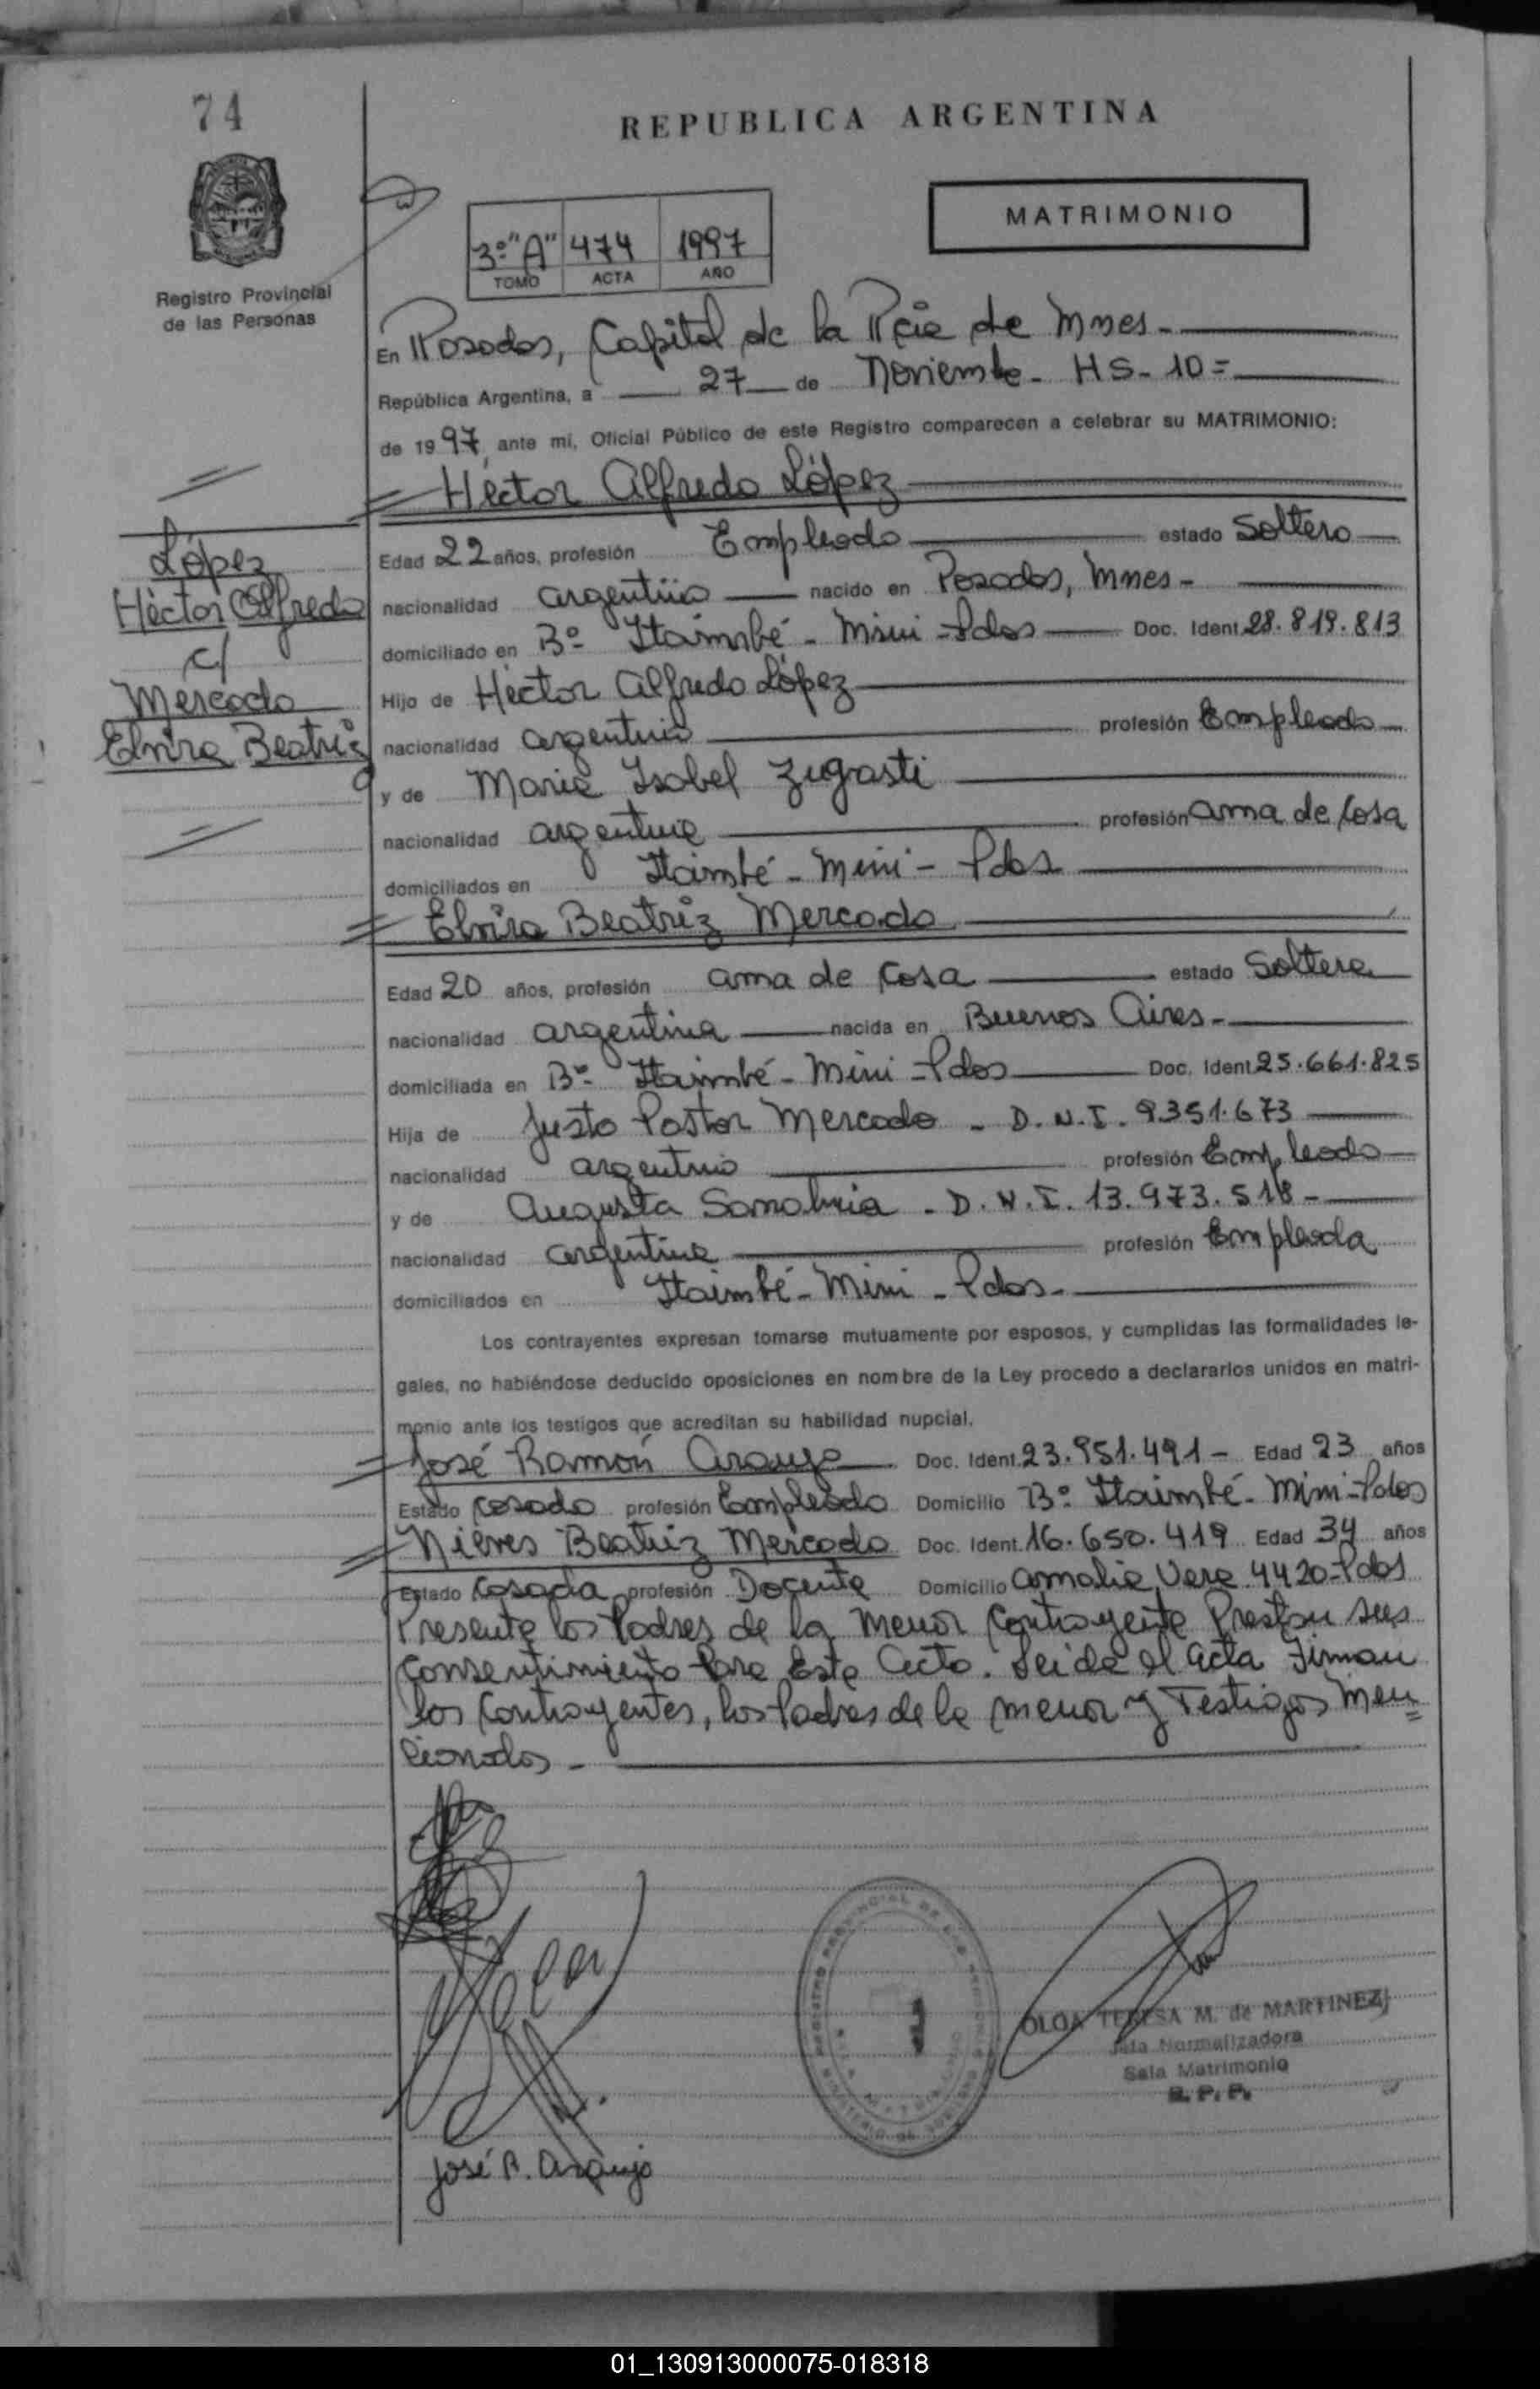 74
REPUBLICA ARGENTINA
MATRIMONIO
3º "A" 474 1997
TOMO ACTA AÑO
Registro Provincial
de las Personas
En Posadas, Capital de la Pcia de Mnes.
República Argentina, a 27 de Noviembre. HS. 10=
de 1997, ante mi, Oficial Público de este Registro comparecen a celebrar su MATRIMONIO:
Héctor Alfredo López
López
Héctor Alfredo
c/
Mercado
Elvira Beatriz
Edad 22 años, profesión Empleado estado Soltero
nacionalidad argentino nacido en Posadas, Mnes-
domiciliado en Bº Itaimbé - Mini - Pdas Doc. Ident. 28.819.813
Hijo de Héctor Alfredo López
nacionalidad argentino profesión Empleado
y de María Isabel Zugasti
nacionalidad argentina profesión ama de casa
domiciliados en Itaimbé - Mini - Pdas
Elvira Beatriz Mercado
Edad 20 años, profesión ama de casa estado Soltera
nacionalidad argentina nacida en Buenos Aires-
domiciliada en Bº Itaimbé - Mini - Pdas Doc. Ident. 25.661.825
Hija de Justo Pastor Mercado - D.N.I. 9.351.673
nacionalidad argentino profesión Empleado
y de Augusta - D.N.I. 13.973.518-
nacionalidad argentina profesión Empleada
domiciliados en Itaimbé - Mini - Pdas.
Los contrayentes expresan tomarse mutuamente por esposos, y cumplidas las formalidades le-
gales, no habiéndose deducido oposiciones en nombre de la Ley procedo a declararlos unidos en matri-
monio ante los testigos que acreditan su habilidad nupcial.
José Ramón Araujo Doc. Ident. 23.951.491- Edad 23 años
Estado casado profesión Empleado Domicilio Bº Itaimbé - Mini - Pdas
Nieves Beatriz Mercado Doc. Ident. 16.650.419 Edad 34 años
Estado casada profesión Docente Domicilio Amalia Vera 4420-Pdas
Presente los Padres de la menor contrayente Prestan sus
consentimiento Para Este Acto. Leida el acta Firman
los contrayentes, los Padres de la menor y Testigos Men
cionados -
REGISTRO PROVINCIAL DE LAS PERSONAS
1
OLGA TERESA M. de MARTINEZ
Jefa Normalizadora
Sala Matrimonio
R. P. P.
José R. Araujo
01_130913000075-018318